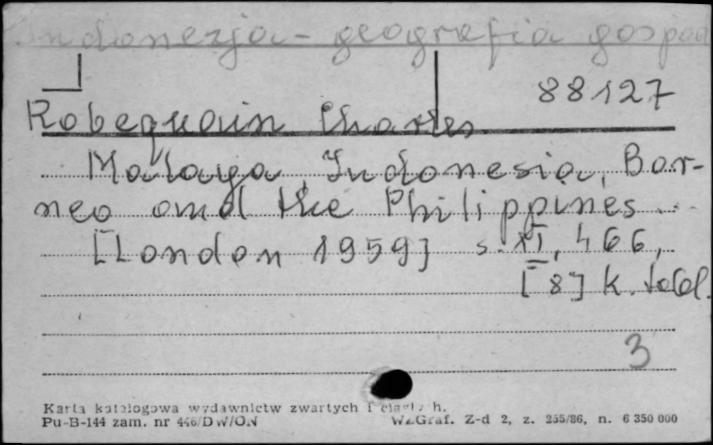 Indonezja - geografia gospod
88127
Robequain Charles
Malaya, Indonesia, Bor-
neo and the Philippines...
[London 1959] s. XI, 466,
[8] k. tabl.
3
Karta katalogowa wydawnictw zwartych i ciągłych.
Pu-B-144 zam. nr 446/DW/ON WZGraf. Z-d 2, z. 255/86, n. 6 350 000